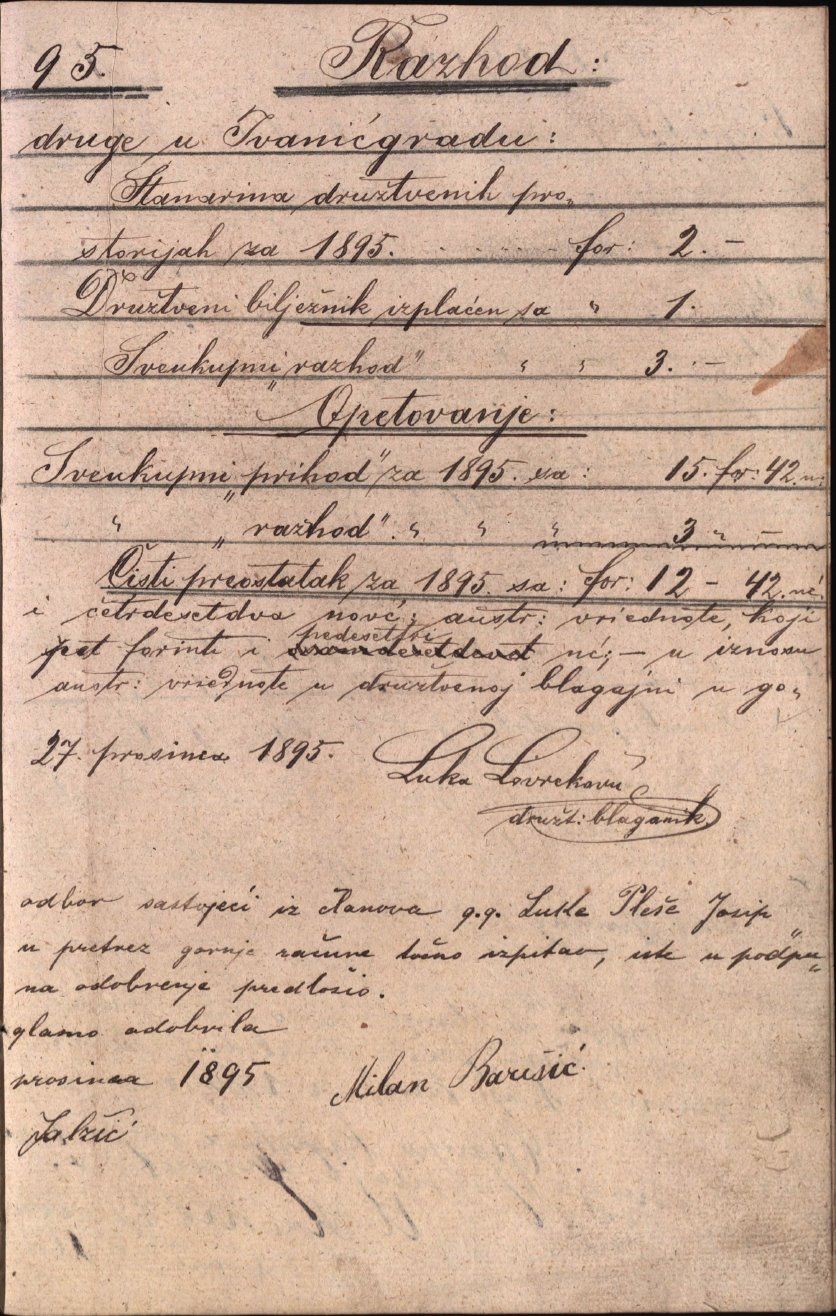 95. Razhod:
druge u Ivanićgradu:
Stanarina družtvenih pro„
storijah za 1895. . . . . . . . for: 2. –
Družtveni bilježnik izplaćen sa „ 1.
Sveukupni „razhod" „ „ 3. . –
Opetovanje:
Sveukupni „prihod" za 1895. sa: 15. for: 42 n:
„ „razhod". „ „ „ 3 „ –
Čisti preostatak za 1895. sa: for: 12 – 42. nč.
i četrdesetdva novč: austr: vriednote, koji
pedesettri
pet forinti i nč; – u iznosu
austr: vriednote u družtvenoj blagajni u go„
27. prosinca 1895. Luka Lovreković
družt: blagajnik.
odbor sastojeći iz članova g.g. Luke Pleše Josip
u pretrez gornje račune točno izpitav, iste u podpu„
na odobrenje predložio.
glasno odobrila
prosinca 1895 Milan Barišić.
Jalžić